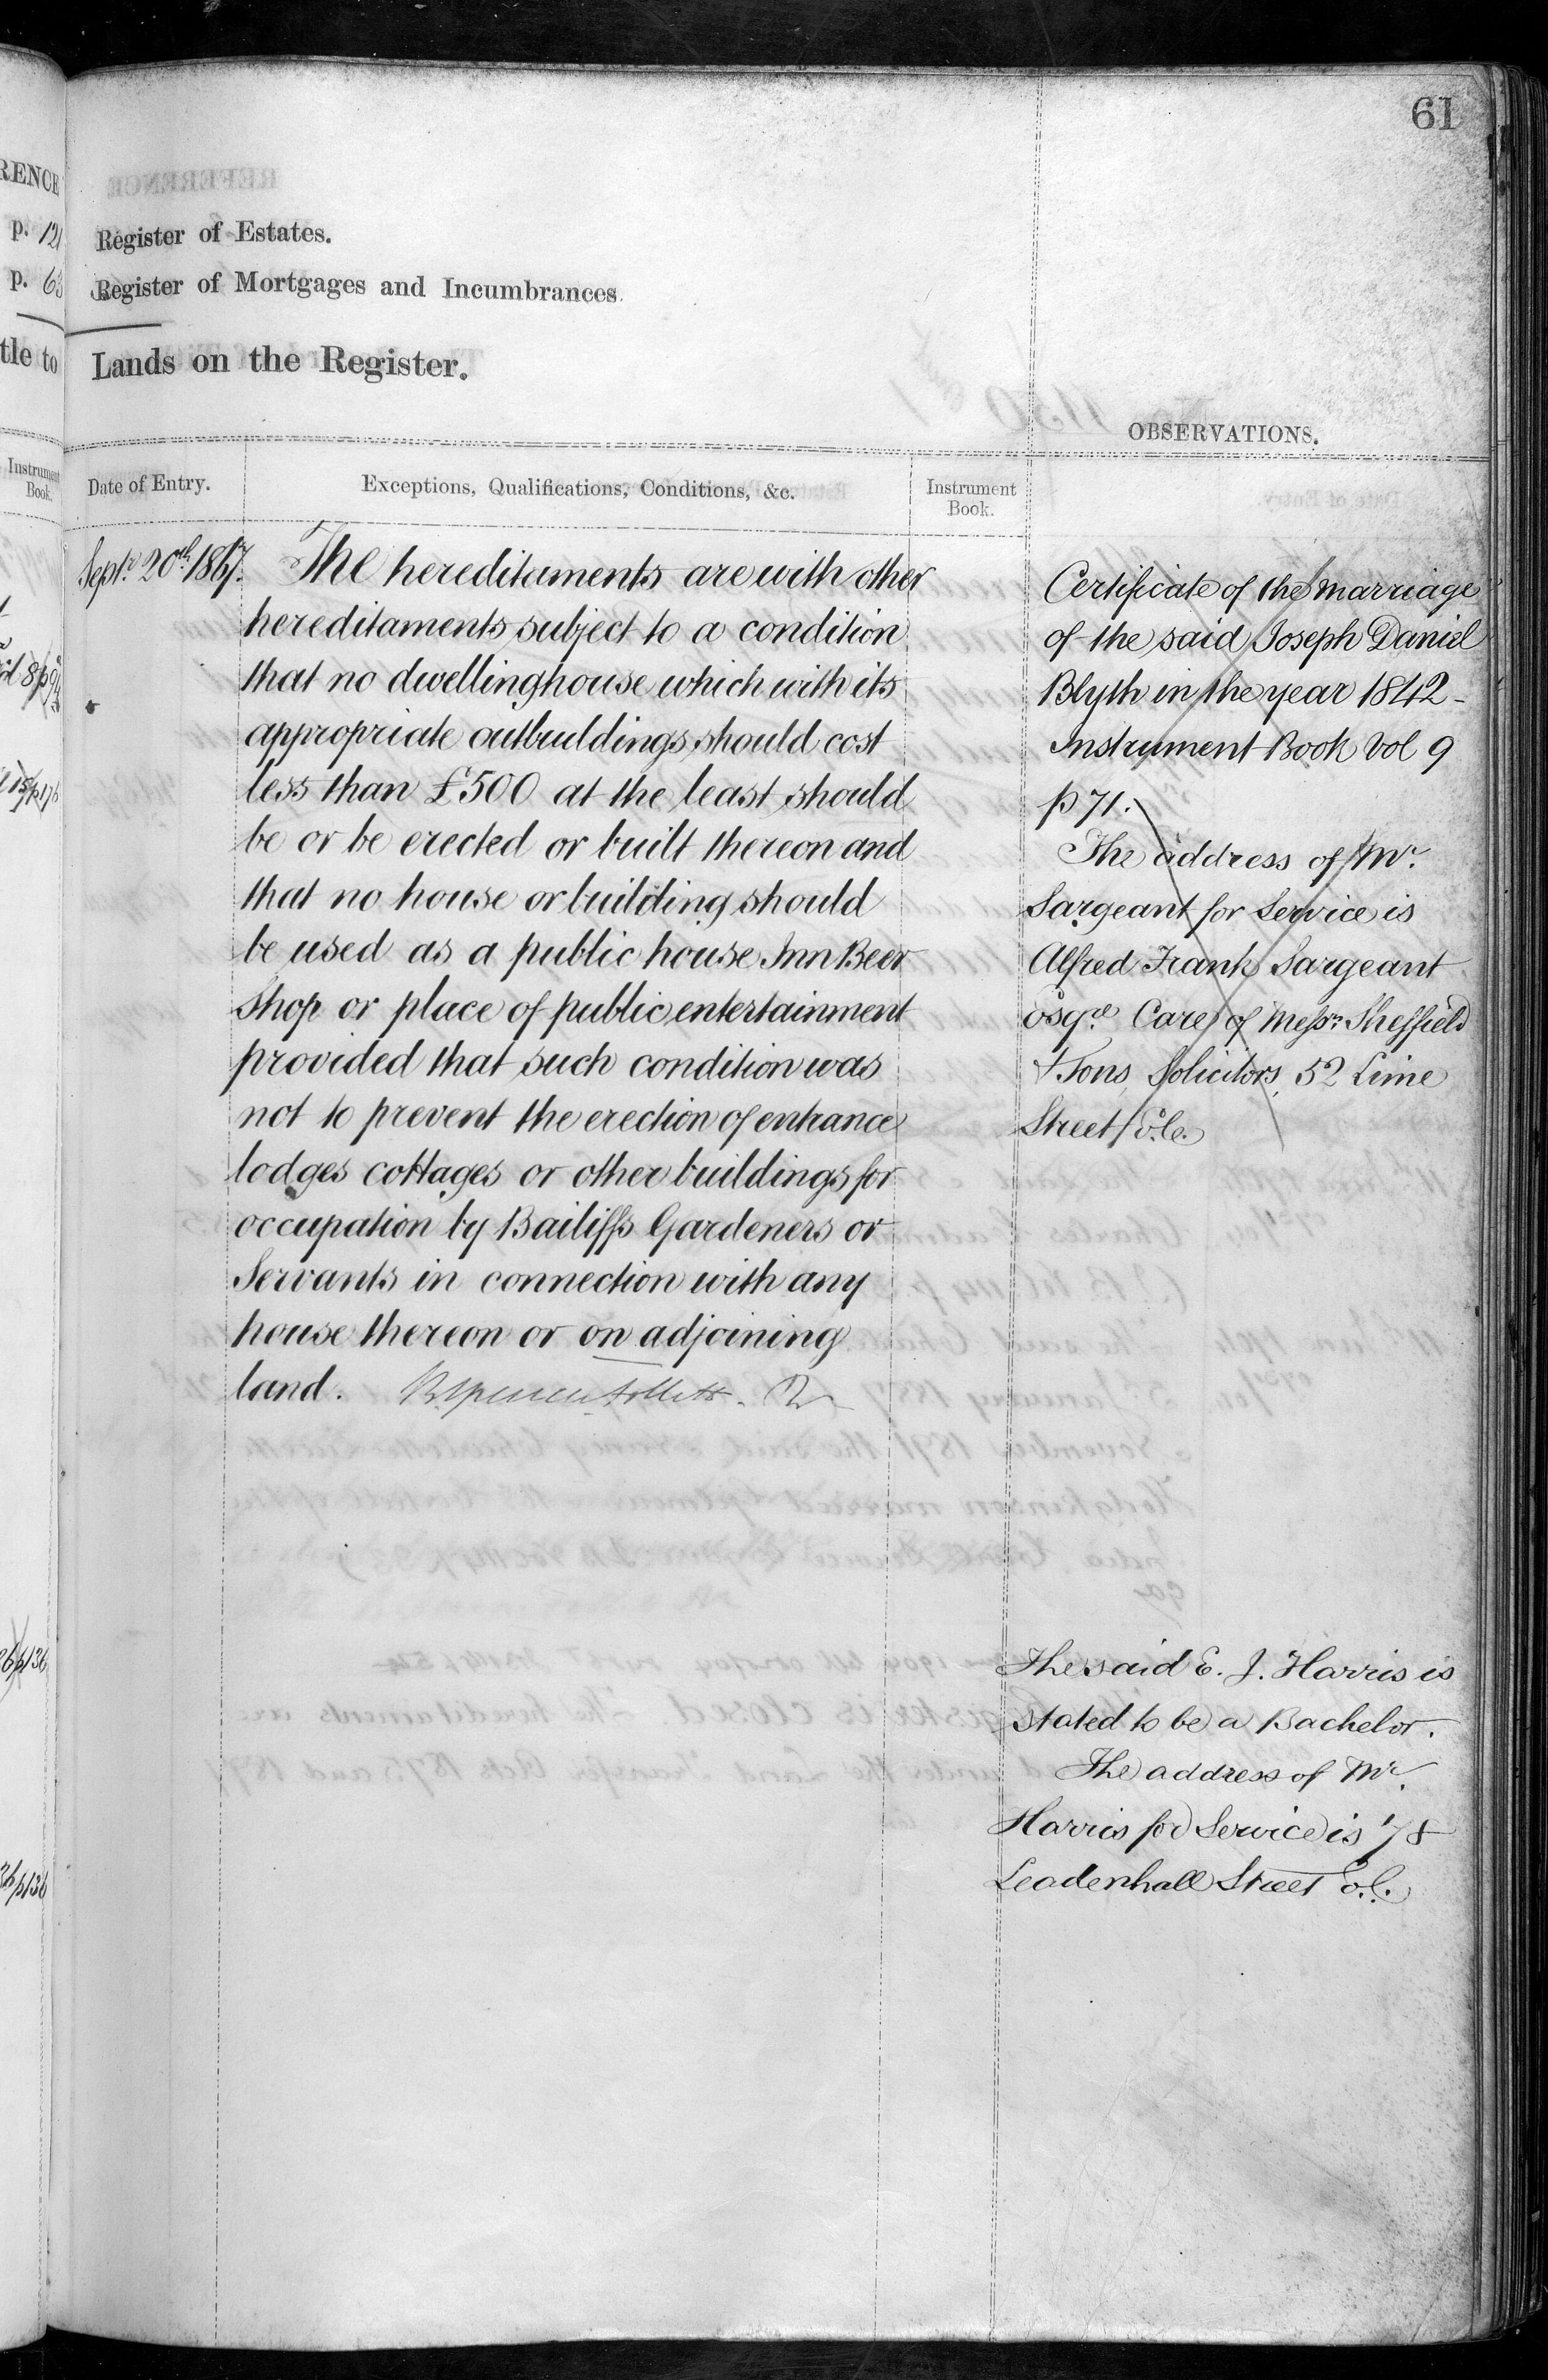 61
RENCE
p. 121
p. 63
tle to
Instrument
Book.
Register of Estates.
Register of Mortgages and Incumbrances.
Lands on the Register.
OBSERVATIONS.
Date of Entry.
Exceptions, Qualifications, Conditions, &c.
Instrument
Book.
Septr. 20th 1867.
The hereditaments are with other
hereditaments subject to a condition
that no dwellinghouse which with its
appropriate outbuildings should cost
less than £500 at the least should
be or be erected or built thereon and
that no house or building should
be used as a public house Inn Beer
Shop or place of public entertainment
provided that such condition was
not to prevent the erection of entrance
lodges cottages or other buildings for
occupation by Bailiffs Gardeners or
Servants in connection with any
house thereon or on adjoining
land.
Certificate of the marriage
of the said Joseph Daniel
Blyth in the year 1842 -
Instrument Book Vol 9
p 71.
The address of Mr.
Sargeant for Service is
Alfred Frank Sargeant
Esqre. Care of Messrs. Sheffield
& Sons, Solicitors, 52 Lime
Street E.C.
The said E. J. Harris is
stated to be a Bachelor.
The address of Mr.
Harris for Service is 78
Leadenhall Street E.C.